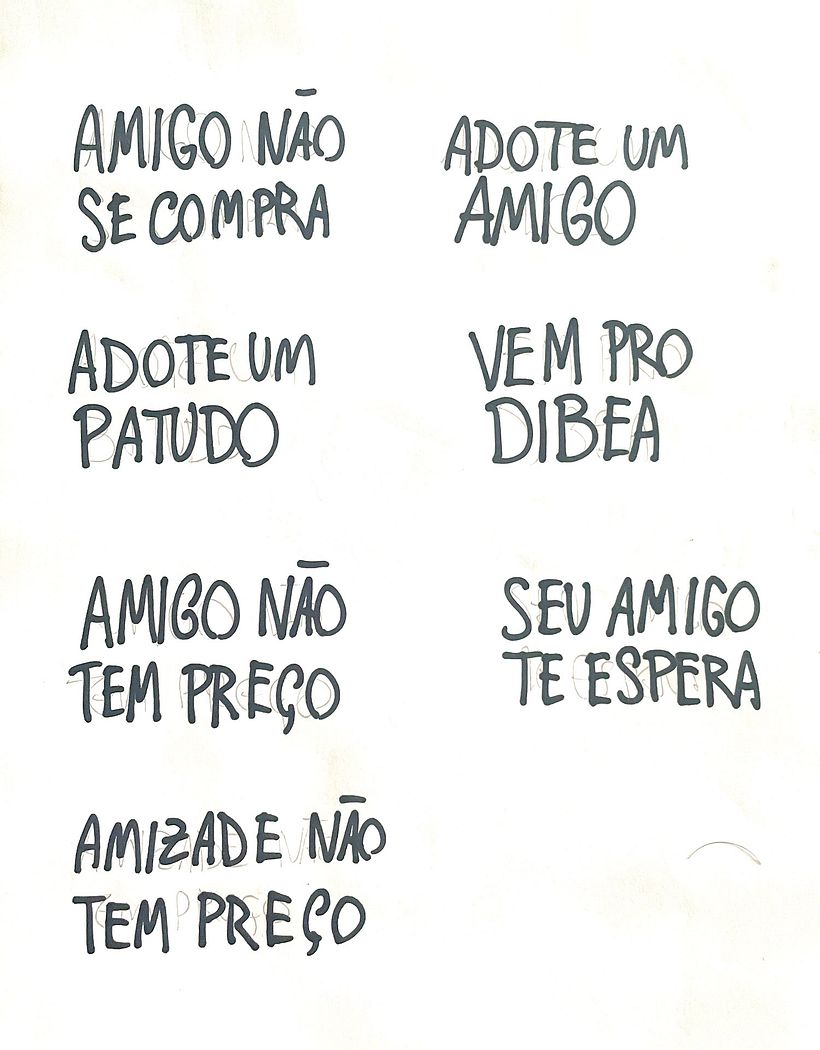 AMIGO NÃO
SE COMPRA
ADOTE UM
AMIGO
ADOTE UM
PATUDO
VEM PRO
DIBEA
AMIGO NÃO
TEM PREÇO
SEU AMIGO
TE ESPERA
AMIZADE NÃO
TEM PREÇO